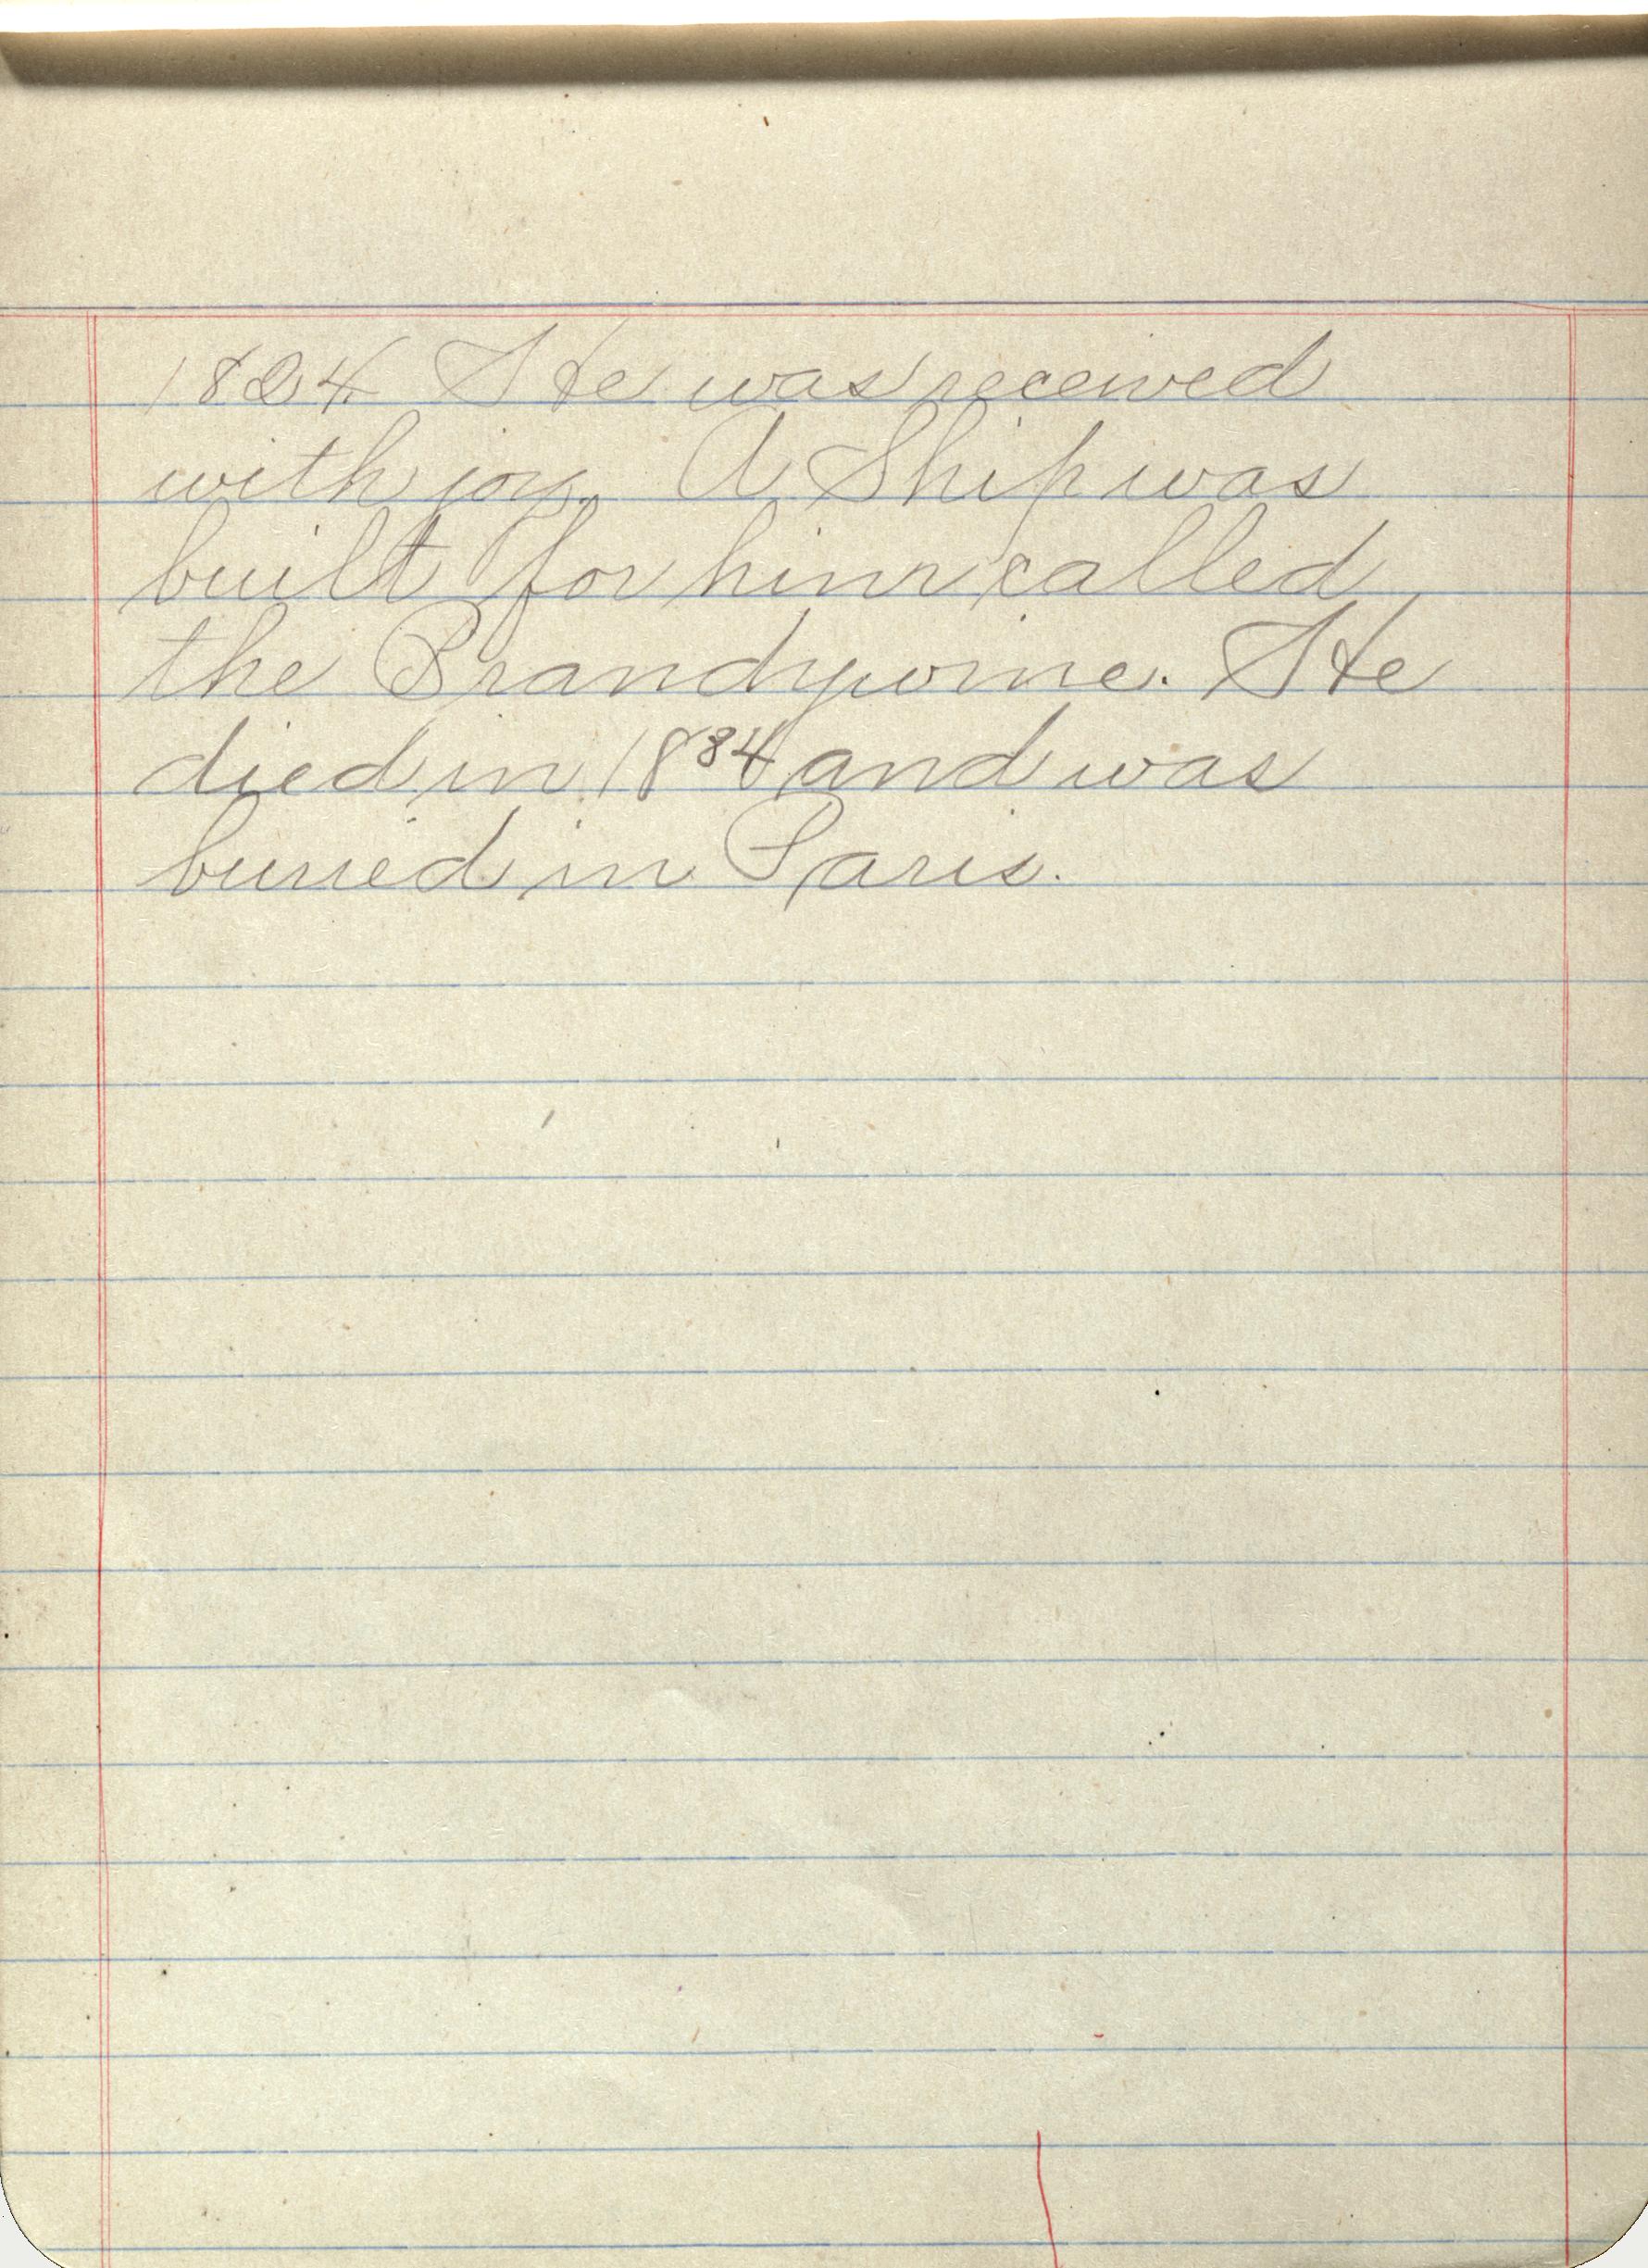 1824. He was received
with joy. A Ship was
built for him called
the Brandywine. He
died in 1834 and was
buried in Paris.